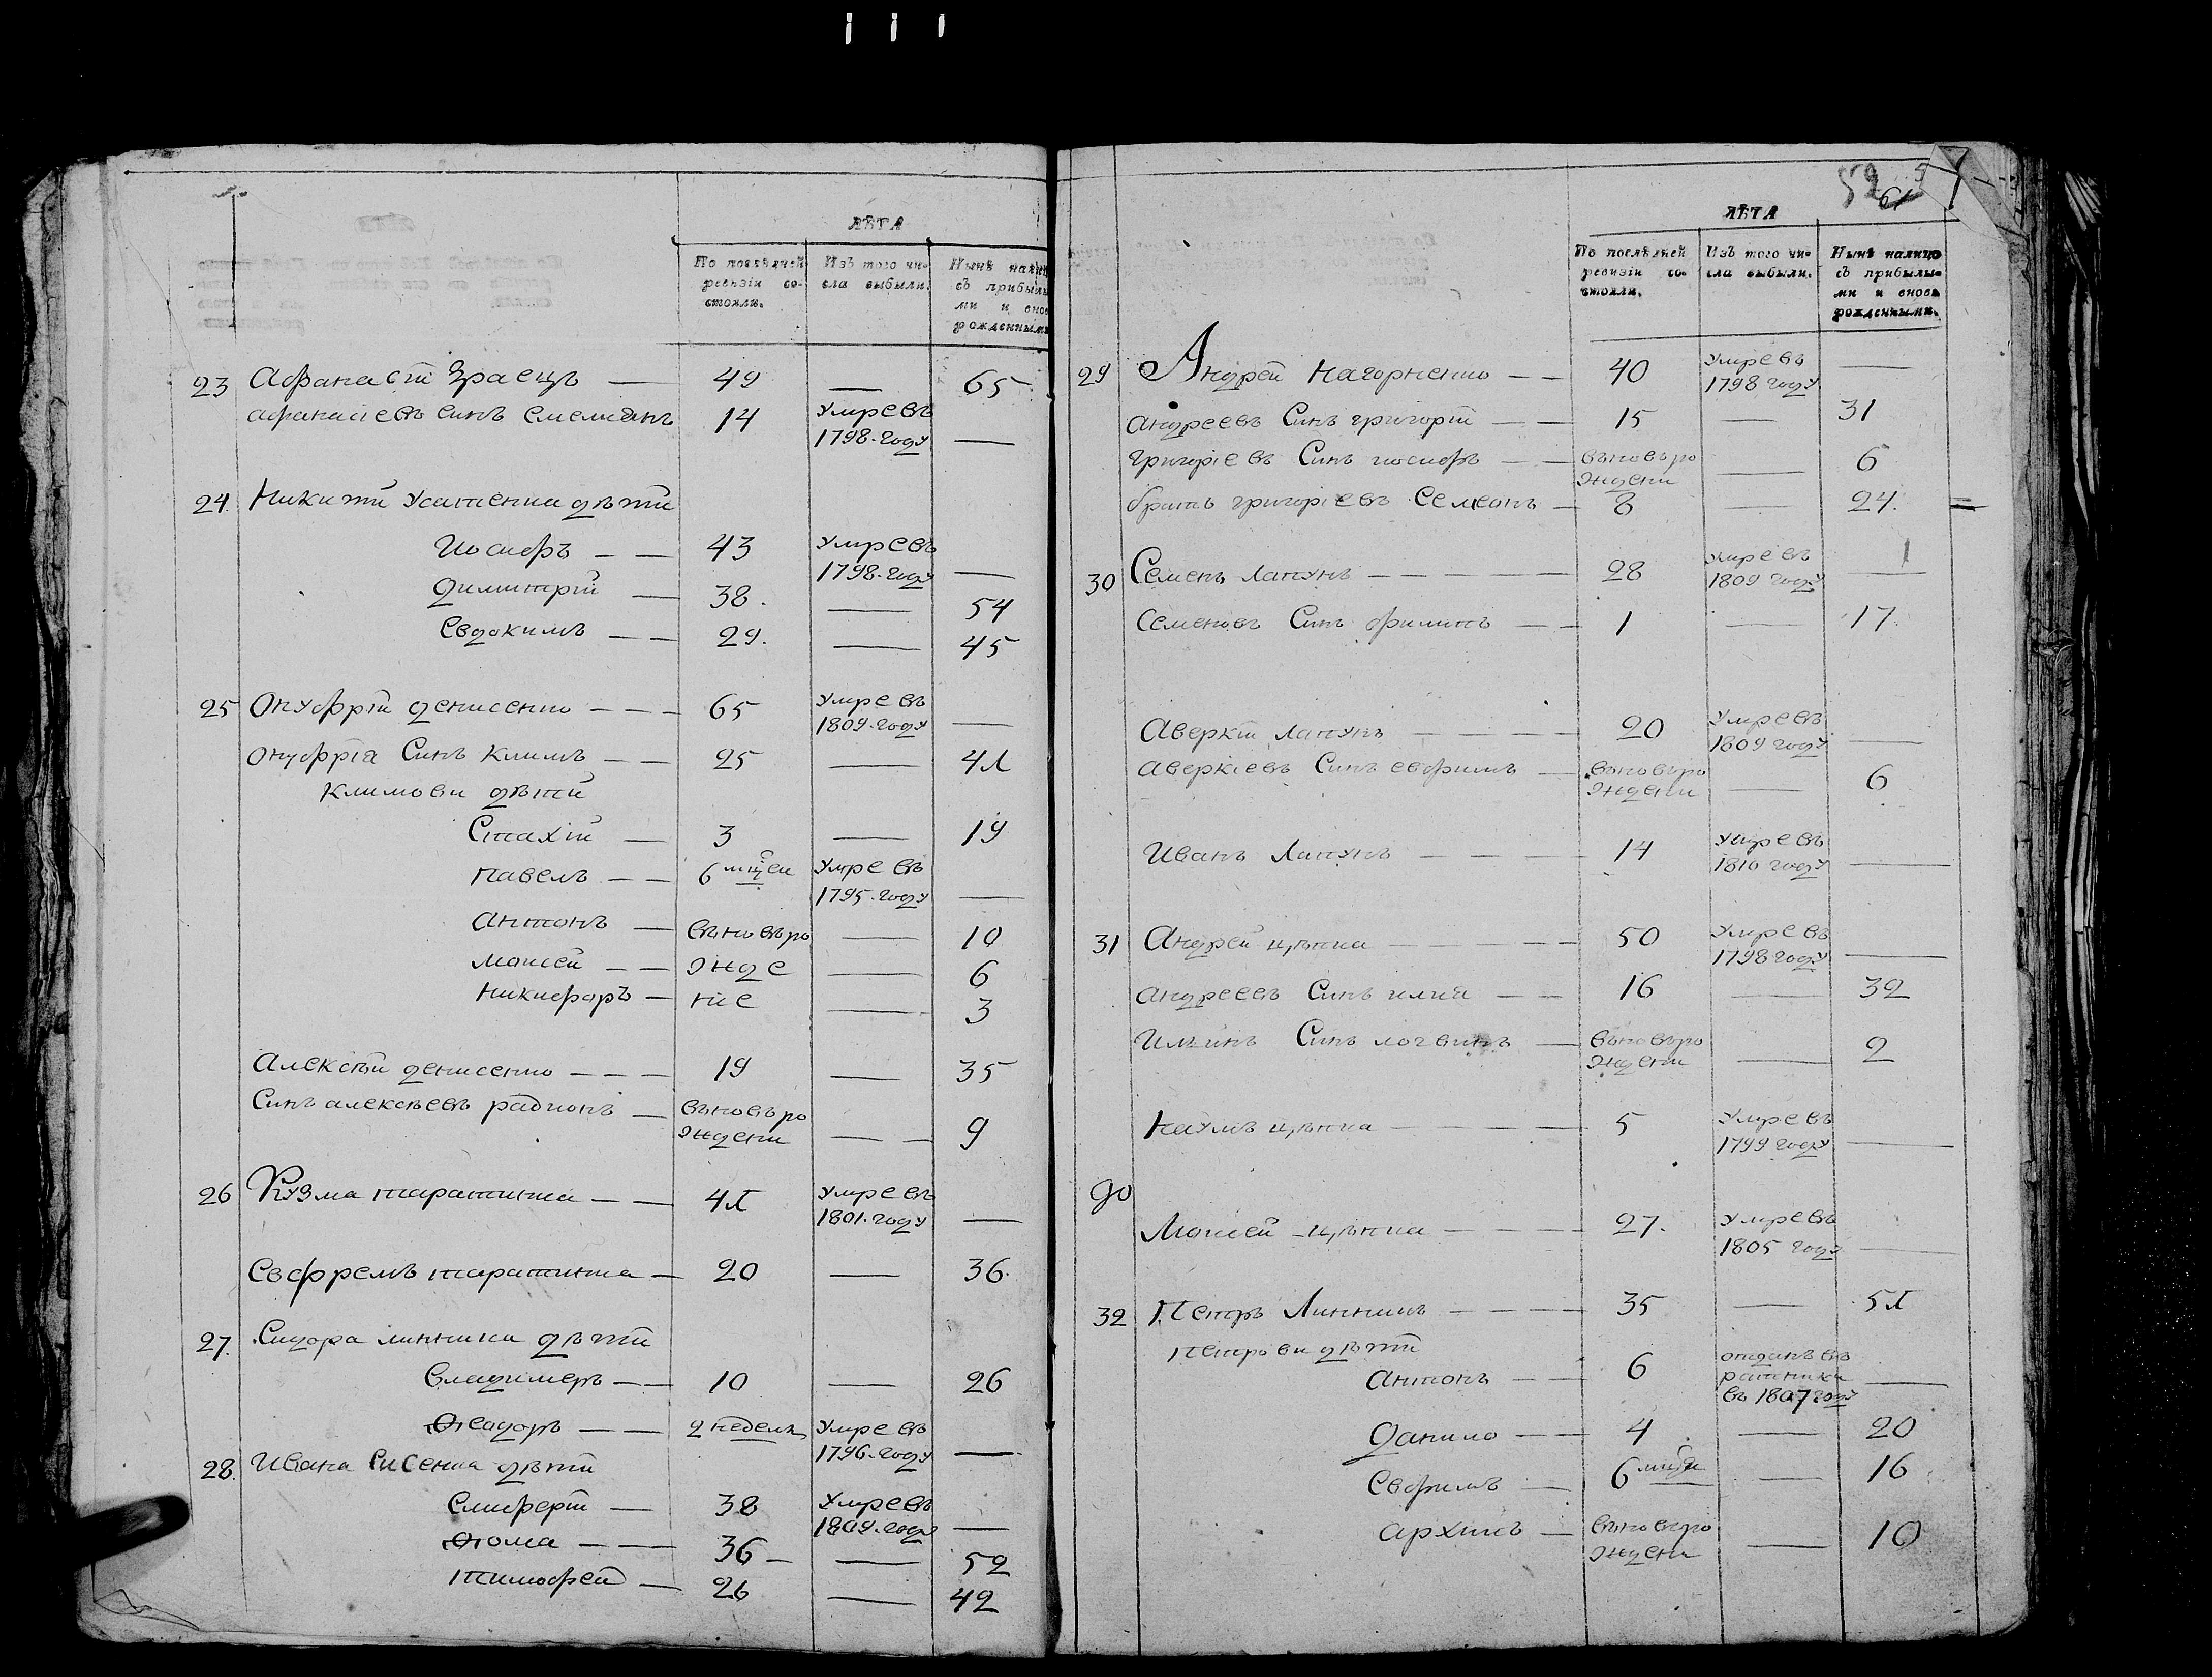 ЛѢТА
По послѣдней ревизіи со-стояли.
Изъ того чи-сла выбыли.
Нынѣ нали с прибылы ми и внов рожденными
23 Афанасій Заецъ — 49 — 65
афанасіевъ синъ Емелианъ 14 умре въ 1798. году —
24. Никити Усатенка дѣти
Иосифъ — — 43 умре въ 1798. году —
Димитрій — 38. — 54
Евдокимъ — — 29. — 45
25 Онуфрій Денисенко — — — 65 умре въ 1809. году —
Онуфрія Синъ Климъ — — 25 — 41
Климови дѣти
Стахій — 3 — 19
Павелъ — — 6 мцей умре въ 1795. году —
Антонъ — вновъ ро — 10
Моисей — — жде — 6
Никифоръ — ніе — 3
Алексѣй Денисенко — — — 19 — 35
Синъ алексѣевъ радионъ — вновъ ро жденн — — 9
26 Кузма таратинка — — 41 умре въ 1801. году —
Евфремъ таратинка — 20 — 36.
27. Сидора линника дѣти
Владимеръ — — 10 — 26
Ѳеодоръ — — 2 недель умре въ 1796. году —
28. Ивана дѣти
Елиферій — 38 умре въ 1809. году —
Ѳома — — 36 — — 52
Тимофей — 26 — 42
52
61
ЛѢТА
По послѣдней ревизіи со-стояли.
Изъ того чи-сла выбыли.
Нынѣ налицо съ прибылы-ми и вновь рожденными.
29 Андрей Нагорненко — — 40 умре въ 1798 году —
андреевъ Синъ григорій — — 15 — 31
григоріевъ Синъ иосифъ — — вновъ ро жденн — 6
братъ григоріевъ Семеонъ — 8 — 24.
30 Семенъ Лапунъ — — — — 28 умре въ 1809 году —
Семеновъ Синъ филипъ — — 1 — 17.
Аверкій Лапунъ — — — — 20 умре въ 1809 году —
Аверкіевъ Синъ евфимъ — вновъ ро жденн — 6
Иванъ Лапунъ — — — — 14 умре въ 1810 году —
31 Андрей цѣпка — — — — 50 умре въ 1798 году —
андреевъ Синъ илиа — — 16 — 32
Ильинъ Синъ логвинъ — вновъ ро жденн — 2
Наумъ цѣпка — — — — 5 умре въ 1799 году —
до
Моисей цѣпка — — — 27. умре въ 1805 году —
32 Петръ Линникъ — — — — 35 — 51
Петрови дѣти
Антонъ — — 6 отданъ въ ратники въ 1807 году —
Данило — — 4 — 20
Евфимъ — 6 мцей — 16
Архипъ — вновъ ро жденн — 10